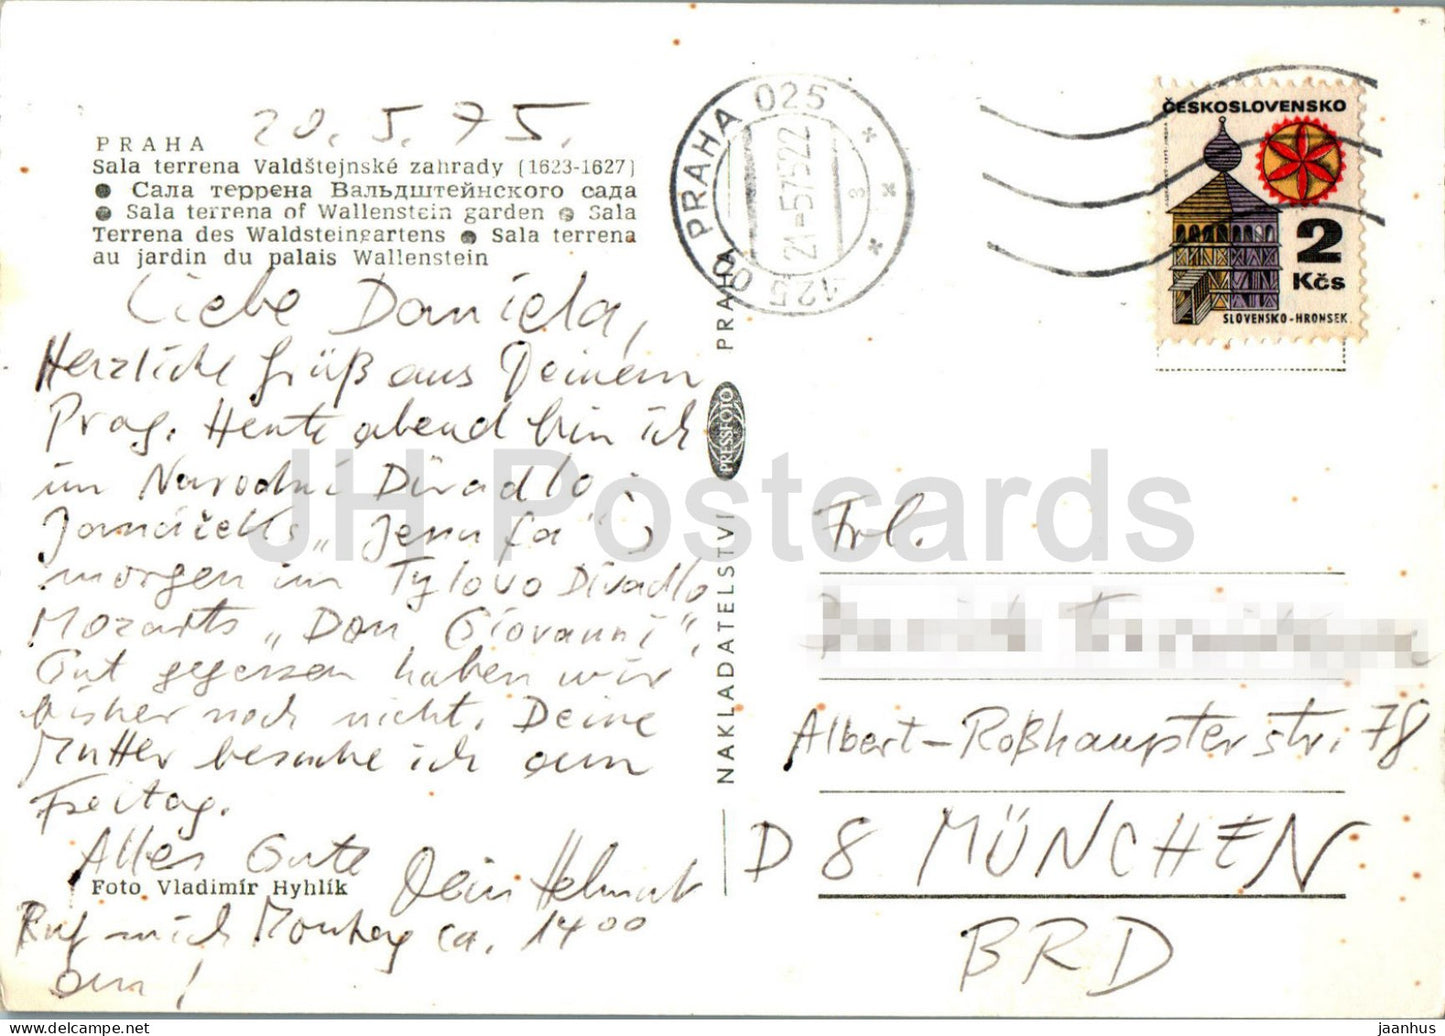 20. 5. 75.
PRAHA
Sala terrena Valdštejnské zahrady (1623-1627)
● Сала террена Вальдштейнского сада
● Sala terrena of Wallenstein garden ● Sala
Terrena des Waldsteingartens ● Sala terrena
au jardin du palais Wallenstein
Liebe Daniela,
Herzliche Grüß aus Deinem
Prag. Heute abend bin ich
im Narodní Divadlo:
Janáčeks „Jenufa"
morgen im Tylovo Divadlo
Mozarts „Don Giovanni".
Gut gegessen haben wir
bisher noch nicht. Deine
Mutter besuche ich am
Freitag.
Alles Gute
Dein Helmut
Foto Vladimír Hyhlík
Ruf mich Montag ca. 1400
an!
NAKLADATELSTVÍ PRESSFOTO PRAHA
PRAHA 025
21.-5.75 22
125 00
ČESKOSLOVENSKO
2
Kčs
SLOVENSKO-HRONSEK
Frl.
Albert-Roßhaupterstr. 78
D 8 MÜNCHEN
BRD
JH Postcards
jaanhus — www.delcampe.net